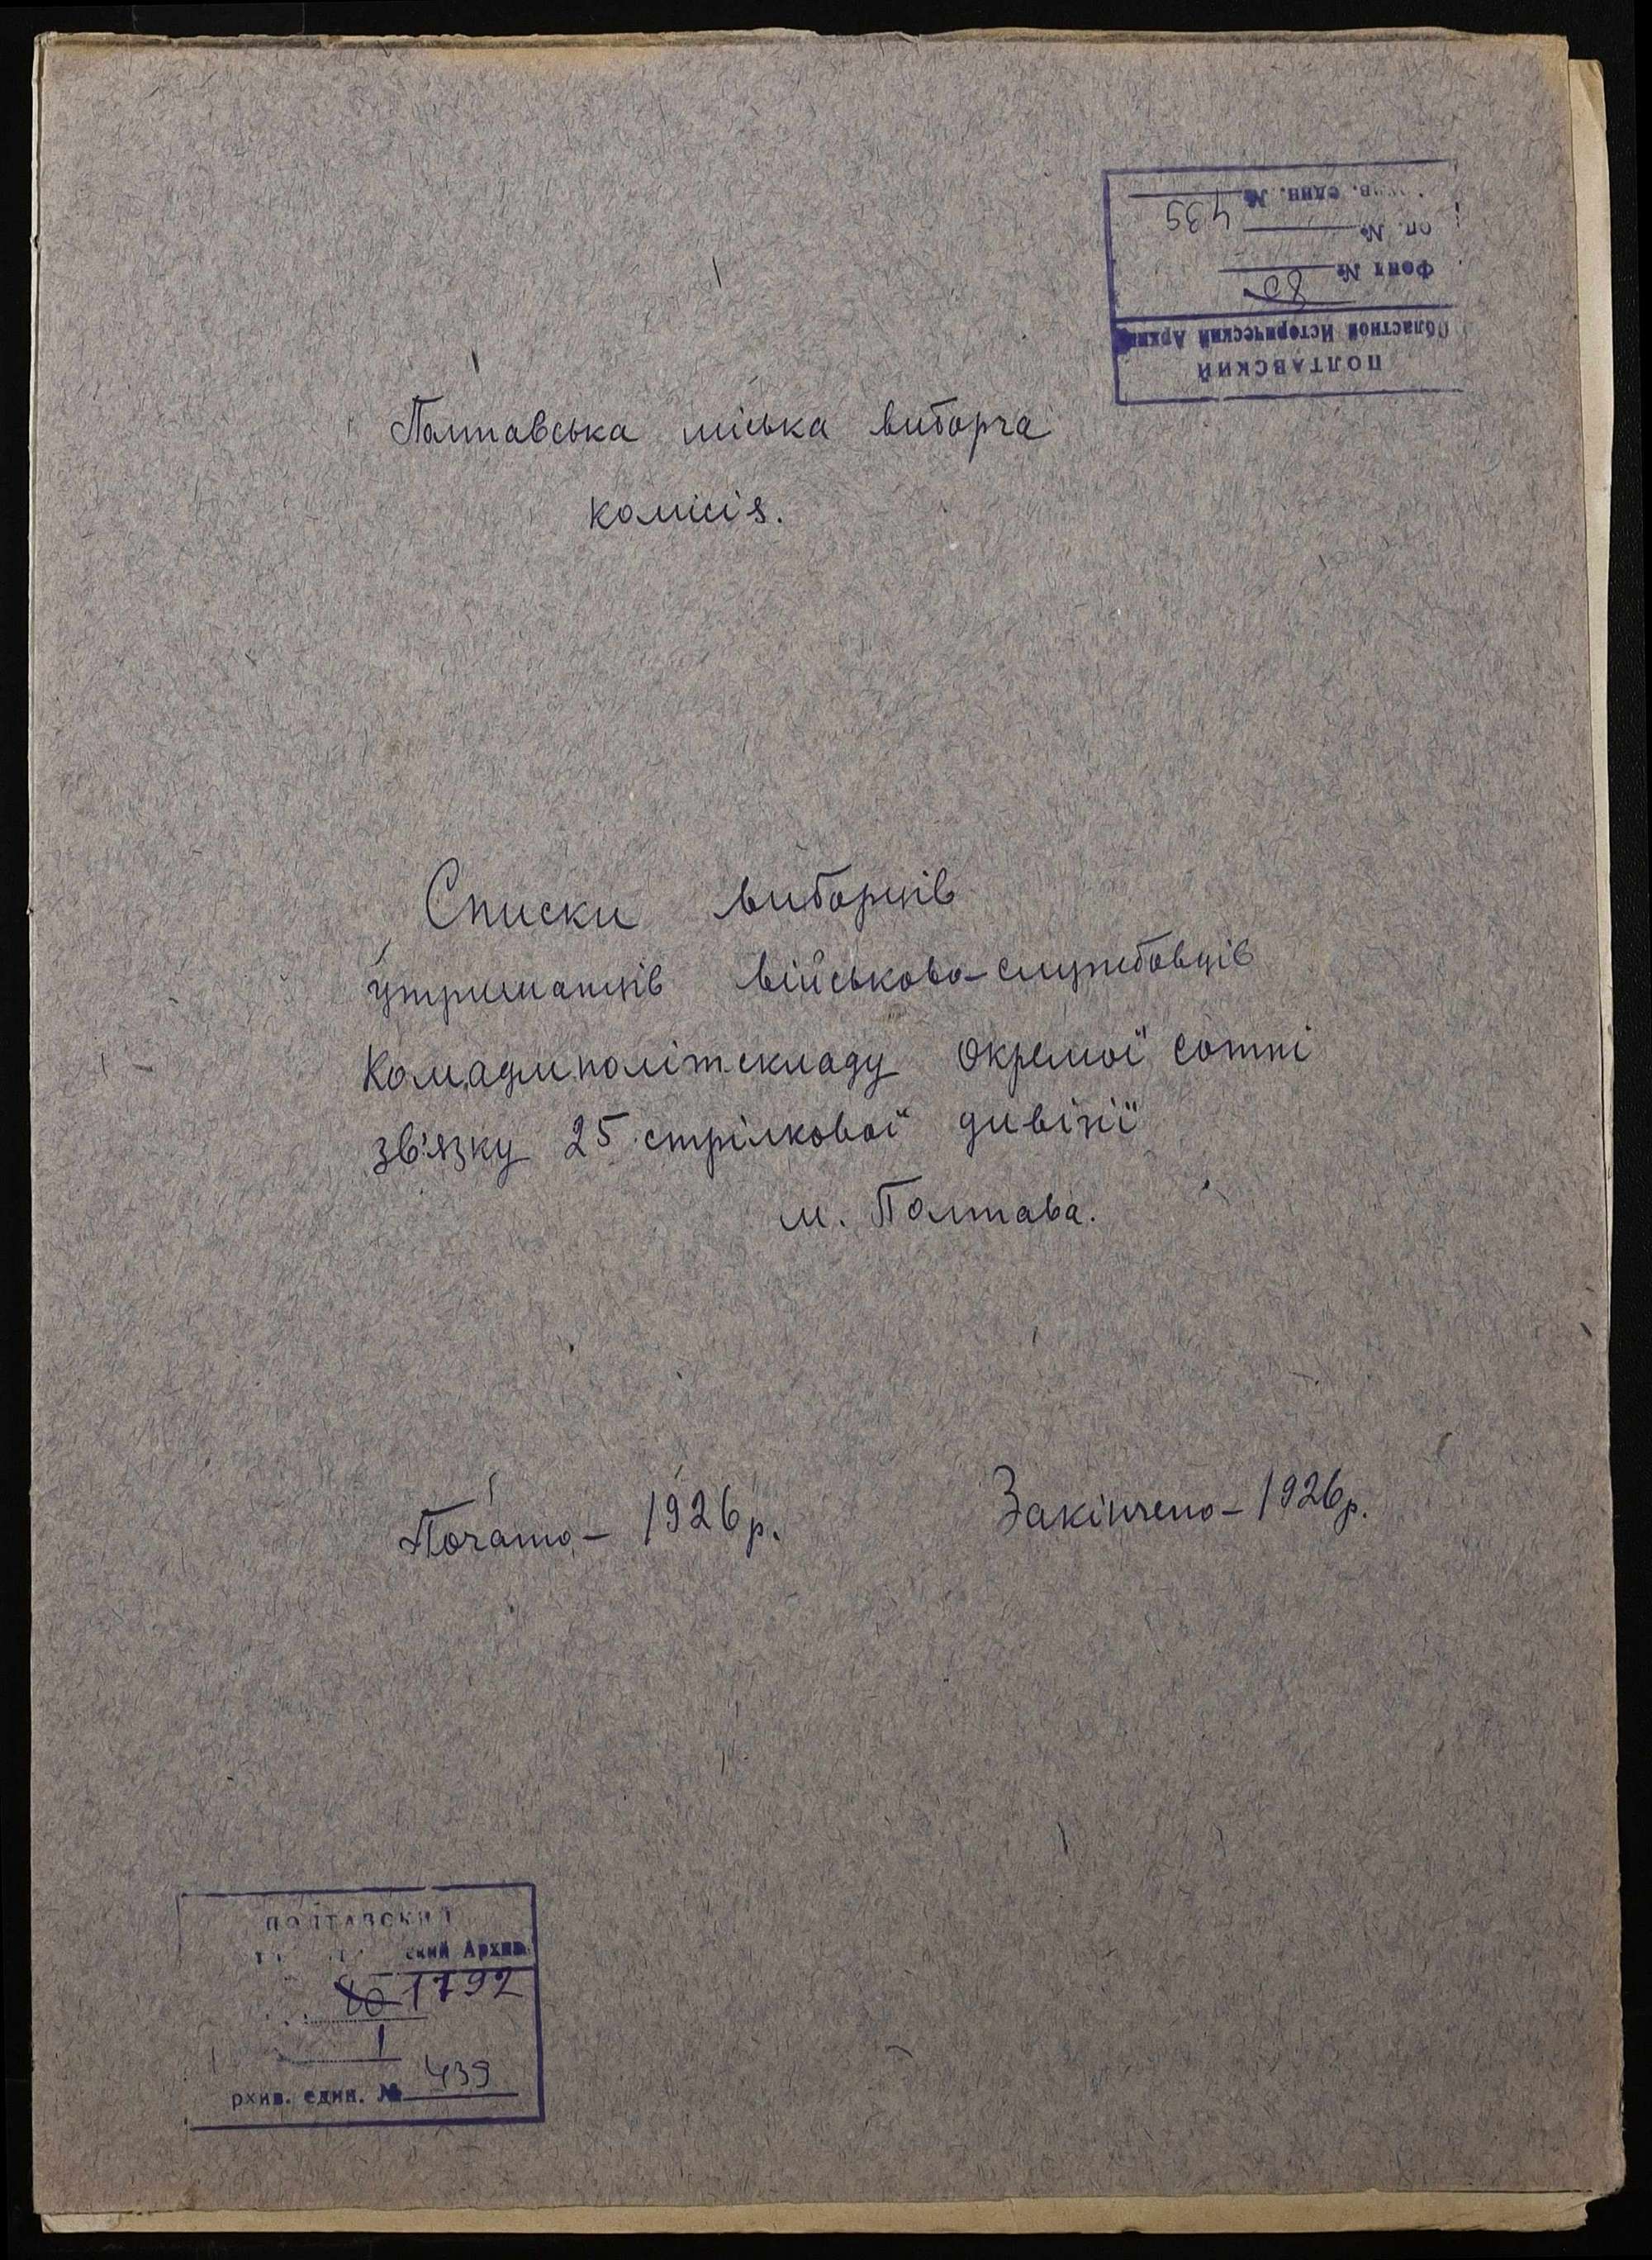 ПОЛТАВСКИЙ
Областной Исторический Архив
Фонд № 80
оп. №
един. № 439
Полтавська міська виборча
комісія.
Списки виборців
утриманців військово-службовців
Комадмполітскладу Окремої сотні
зв'язку 25 стрілкової дивізії
м. Полтава.
Почато - 1926 р.
Закінчено - 1926 р.
ПОЛТАВСКИЙ
ский Архив
80 1792
1
рхив. един. № 439